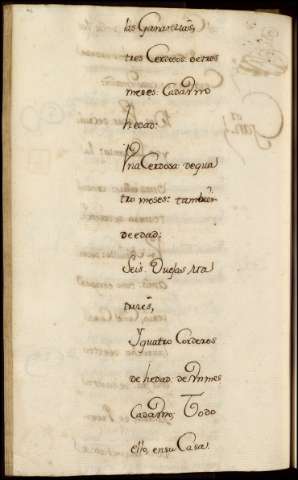 las Ganancias,
tres Cerdosos de tres
meses. Cada Vno
hedad:
Vna Cerdosa de qua
tro meses: tambien
de edad:
Seis Ouejas Ma
tures,
Y quatro Corderos
de hedad: de Vn mes
Cada Vno; Todo
ello, en su Casa.